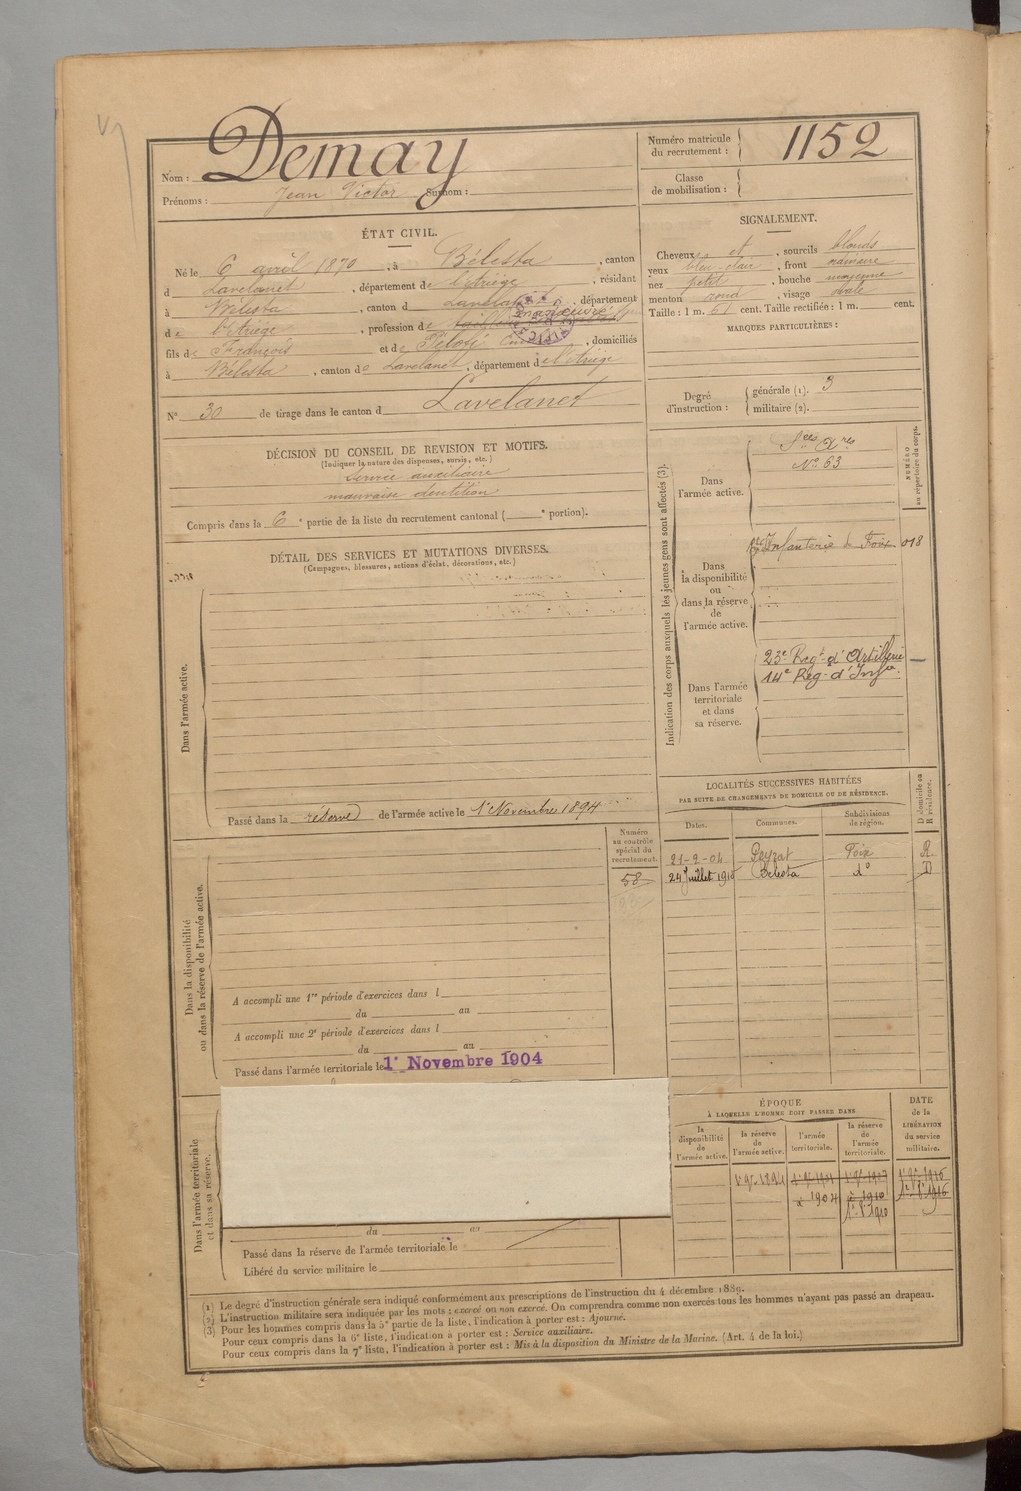 Nom : Demay
Prénoms : Jean Victor Surnom :
Numéro matricule du recrutement : 1152
Classe de mobilisation :
ÉTAT CIVIL.
Né le 6 avril 1870, à Bélesta, canton
d Lavelanet, département de l'Ariège, résidant
à Bélesta, canton d Lavelanet, département
de l'Ariège, profession de
fils de François et de, domiciliés
à Bélesta, canton de Lavelanet, département de l'Ariège
N° 30 de tirage dans le canton d Lavelanet
SIGNALEMENT.
Cheveux et, sourcils blonds
yeux bleu clair, front
nez petit, bouche moyenne
menton rond, visage ovale
Taille : 1 m. 61 cent. Taille rectifiée : 1 m. cent.
MARQUES PARTICULIÈRES :
Degré d'instruction : générale (1). 3
militaire (2).
DÉCISION DU CONSEIL DE REVISION ET MOTIFS.
(Indiquer la nature des dispenses, sursis, etc.)
Service auxiliaire
mauvaise dentition
Compris dans la 6e partie de la liste du recrutement cantonal ( e portion).
DÉTAIL DES SERVICES ET MUTATIONS DIVERSES.
(Campagnes, blessures, actions d'éclat, décorations, etc.)
Dans l'armée active.
Passé dans la réserve de l'armée active le 1er Novembre 1894
Indication des corps auxquels les jeunes gens sont affectés (3).
NUMÉRO au répertoire du corps.
Dans l'armée active.
N° 63
Dans la disponibilité ou dans la réserve de l'armée active.
Infanterie de Foix 018
Dans l'armée territoriale et dans sa réserve.
23e Regt d'Artillerie
14e Reg. d'Infie
LOCALITÉS SUCCESSIVES HABITÉES
PAR SUITE DE CHANGEMENTS DE DOMICILE OU DE RÉSIDENCE.
Dates. Communes. Subdivisions de région. D domicile ou R résidence.
21-2-04 Peyrat Foix R
24 Juillet 1910 Bélesta do D
Numéro au contrôle spécial du recrutement.
58
Dans la disponibilité ou dans la réserve de l'armée active.
A accompli une 1re période d'exercices dans l
du au
A accompli une 2e période d'exercices dans l
du au
Passé dans l'armée territoriale le 1er Novembre 1904
Dans l'armée territoriale et dans sa réserve.
du au
Passé dans la réserve de l'armée territoriale le
Libéré du service militaire le
ÉPOQUE
À LAQUELLE L'HOMME DOIT PASSER DANS
la disponibilité de l'armée active. la réserve de l'armée active. l'armée territoriale. la réserve de l'armée territoriale.
DATE de la LIBÉRATION du service militaire.
1er 9bre 1894
1904
1910
1916
(1) Le degré d'instruction générale sera indiqué conformément aux prescriptions de l'instruction du 4 décembre 1889.
(2) L'instruction militaire sera indiquée par les mots : exercé ou non exercé. On comprendra comme non exercés tous les hommes n'ayant pas passé au drapeau.
(3) Pour les hommes compris dans la 5e partie de la liste, l'indication à porter est : Ajourné.
Pour ceux compris dans la 6e liste, l'indication à porter est : Service auxiliaire.
Pour ceux compris dans la 7e liste, l'indication à porter est : Mis à la disposition du Ministre de la Marine. (Art. 4 de la loi.)